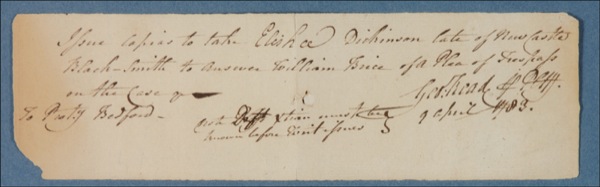 Issue Capias to take Elisha Dickinson late of Newcastle
Black-Smith to answer William Price of A Plea of Trespass
on the Case &c
Geo: Read pr Plff.
To Proty Bedford -
9 April 1783.
note Defts Xtian must be
known before Writ issues